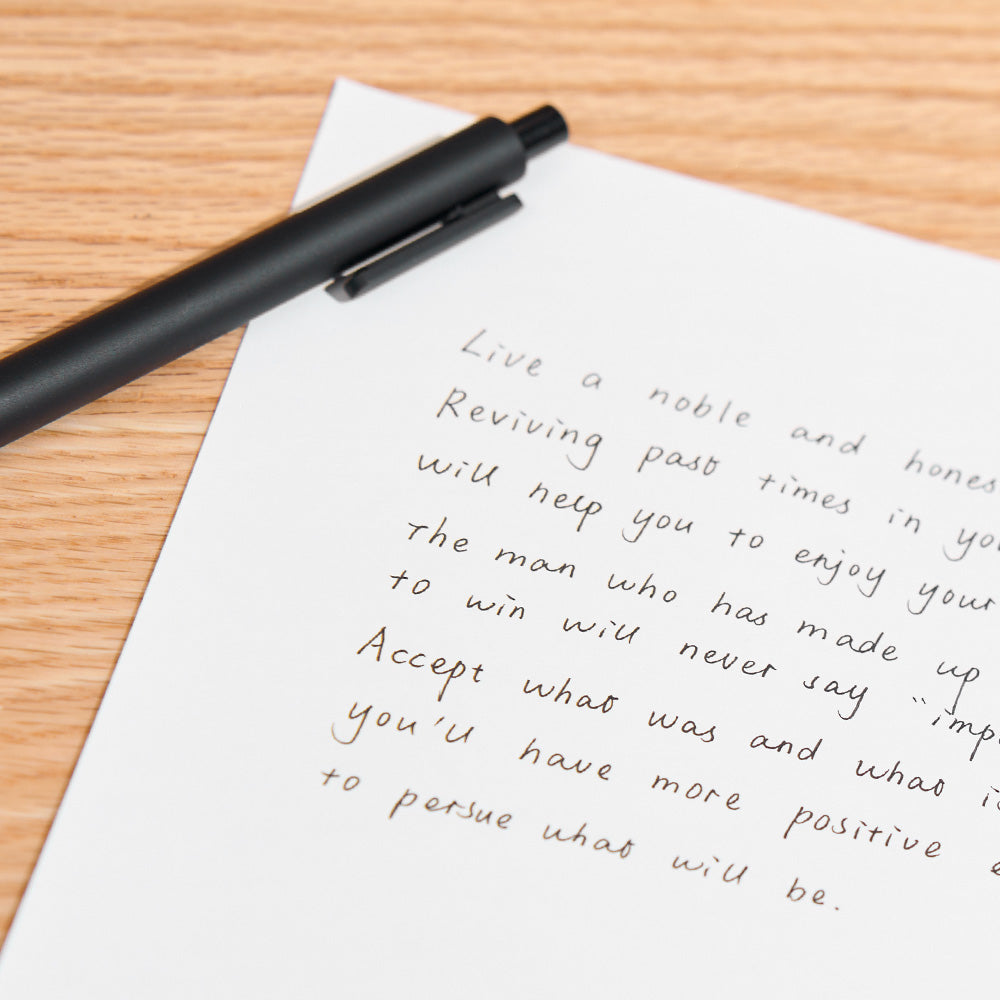 Live a noble and hones
Reviving past times in you
will help you to enjoy your
The man who has made up
to win will never say "imp
Accept what was and what is
you'll have more positive e
to persue what will be.